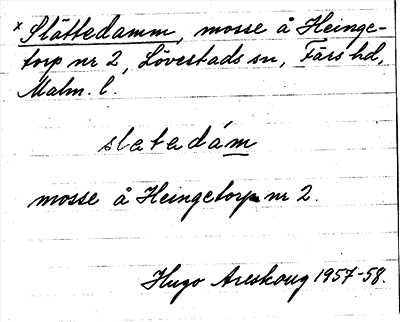 x Slättedamm, mosse å Heinge-
torp nr 2, Lövestads sn, Färs hd,
Malm. l.
slatadám
mosse å Heingetorp nr 2.
Hugo Areskoug 1957-58.